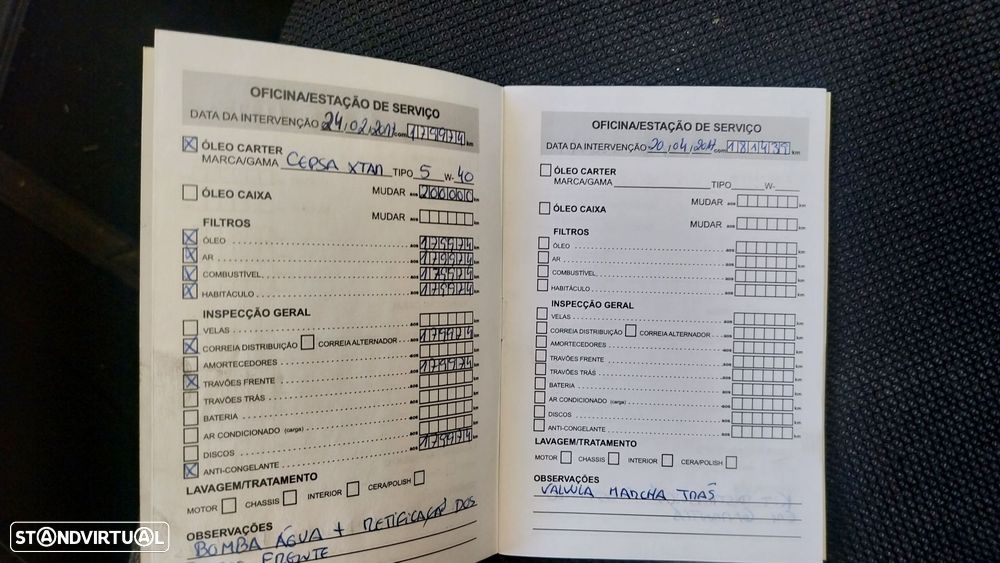 OFICINA/ESTAÇÃO DE SERVIÇO
DATA DA INTERVENÇÃO 24,02,2017 com 179974 km
ÓLEO CARTER
MARCA/GAMA CEPSA XTAR TIPO 5 W- 40
ÓLEO CAIXA MUDAR aos 200000 km
MUDAR aos km
FILTROS
ÓLEO aos 179974 km
AR aos 179974 km
COMBUSTÍVEL aos 179974 km
HABITÁCULO aos 179974 km
INSPECÇÃO GERAL
VELAS aos km
CORREIA DISTRIBUIÇÃO CORREIA ALTERNADOR aos 179974 km
AMORTECEDORES aos km
TRAVÕES FRENTE aos 179974 km
TRAVÕES TRÁS aos km
BATERIA aos km
AR CONDICIONADO (carga) aos km
DISCOS aos km
ANTI-CONGELANTE aos 179974 km
LAVAGEM/TRATAMENTO
MOTOR CHASSIS INTERIOR CERA/POLISH
OBSERVAÇÕES
BOMBA ÁGUA + RETIFICAÇÃO DOS
FRENTE
OFICINA/ESTAÇÃO DE SERVIÇO
DATA DA INTERVENÇÃO 20,04,2017 com 181439 km
ÓLEO CARTER
MARCA/GAMA TIPO W-
MUDAR aos km
ÓLEO CAIXA
MUDAR aos km
FILTROS
ÓLEO aos km
AR aos km
COMBUSTÍVEL aos km
HABITÁCULO aos km
INSPECÇÃO GERAL
VELAS aos km
CORREIA DISTRIBUIÇÃO CORREIA ALTERNADOR aos km
AMORTECEDORES aos km
TRAVÕES FRENTE aos km
TRAVÕES TRÁS aos km
BATERIA aos km
AR CONDICIONADO (carga) aos km
DISCOS aos km
ANTI-CONGELANTE aos km
LAVAGEM/TRATAMENTO
MOTOR CHASSIS INTERIOR CERA/POLISH
OBSERVAÇÕES
VALVULA MARCHA TRÁS
STANDVIRTUAL